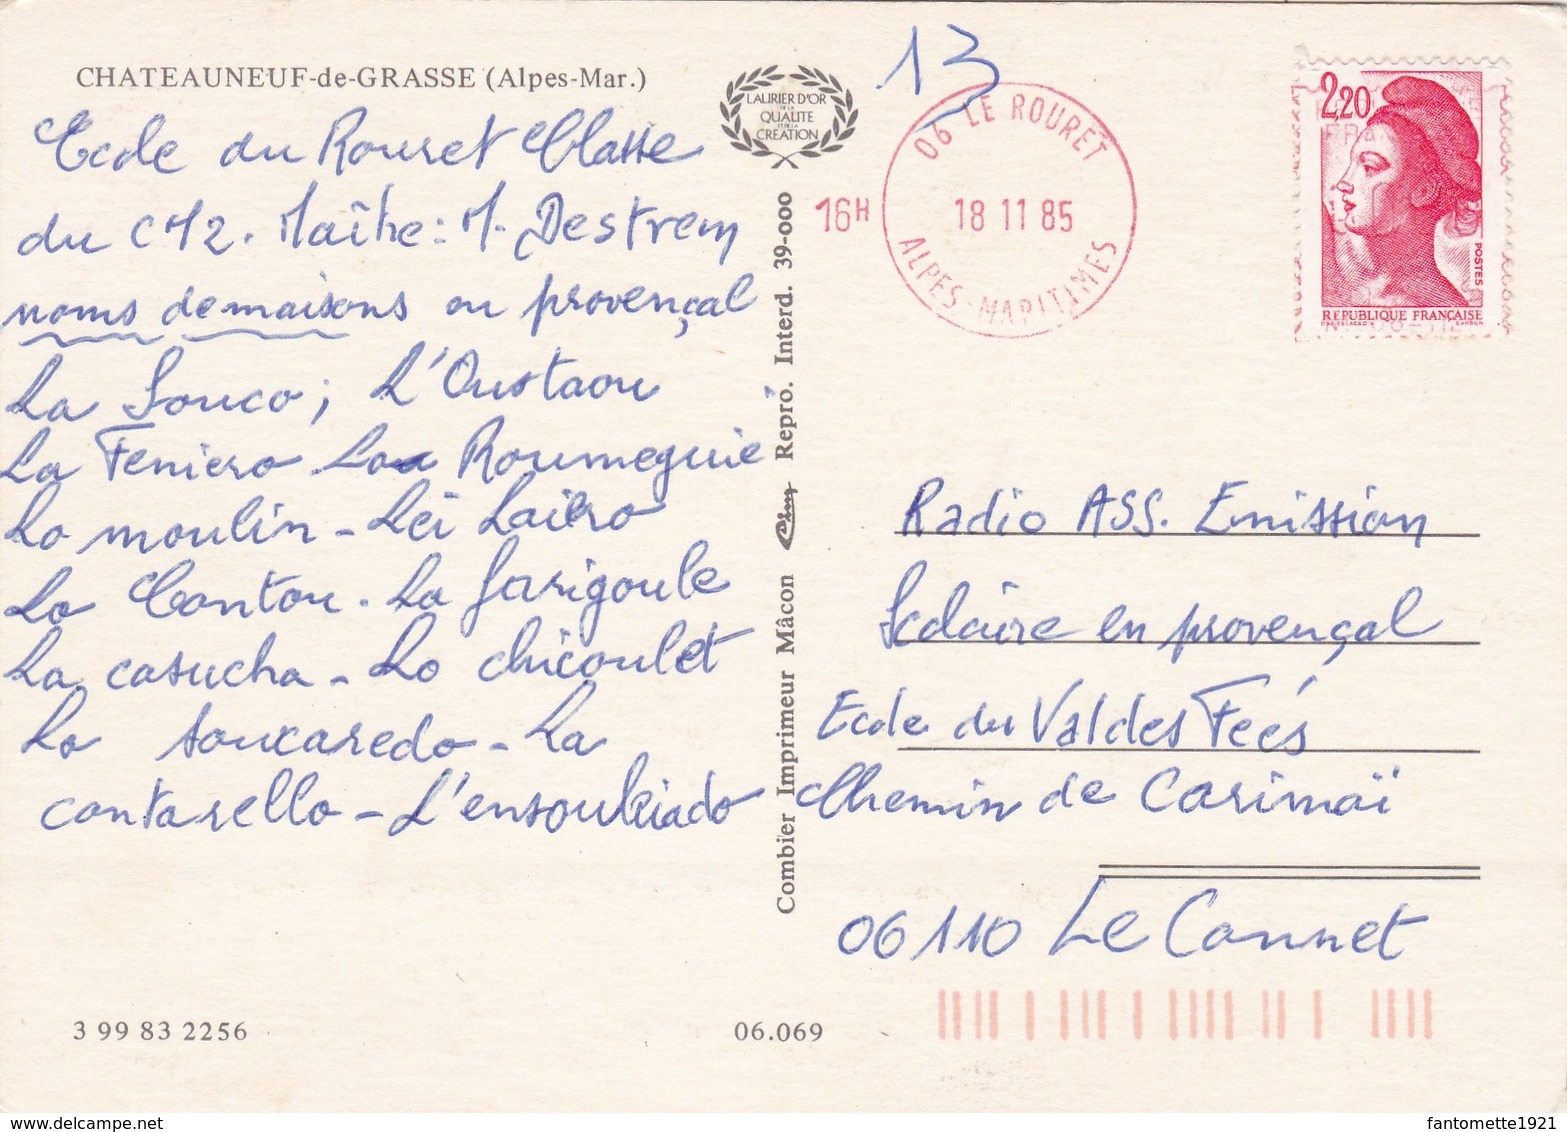 CHATEAUNEUF-de-GRASSE (Alpes-Mar.)
Ecole du Rouret Classe
du CM2. Maître : M. Destrem
noms de maisons en provençal
La Souco ; L'Oustaou
La Feniero - La Roumeguie
Lo moulin - Lei Lairo
Lo Cantou - La farigoule
La casucha - Lo chicoulet
Lo soucaredo - La
cantarello - L'ensouleiado
3 99 83 2256
06.069
LAURIER D'OR
DE LA
QUALITE
ET DE LA
CREATION
Combier Imprimeur Mâcon
Repro. Interd. 39-000
13
06 LE ROURET
16H
18 11 85
ALPES-MARITIMES
2,20
POSTES
REPUBLIQUE FRANÇAISE
Radio ASS. Emission
Scolaire en provençal
Ecole du Val des Feés
Chemin de Carimaï
06110 Le Cannet
fantomette1921